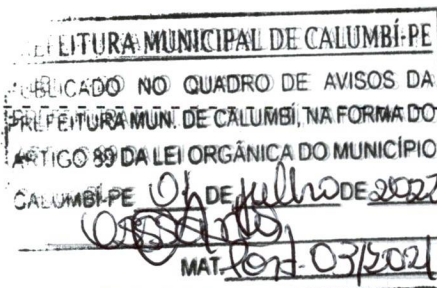 PREFEITURA MUNICIPAL DE CALUMBÍ-PE
PUBLICADO NO QUADRO DE AVISOS DA
PREFEITURA MUN. DE CALUMBÍ, NA FORMA DO
ARTIGO 89 DA LEI ORGÂNICA DO MUNICÍPIO
CALUMBÍ-PE DE julho DE
MAT. Port. 03/2021